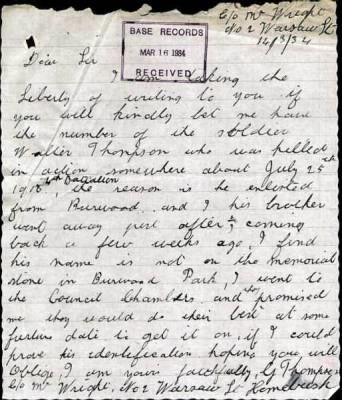 c/o Mr Wright
No 2 Warsaw St
14/3/34
BASE RECORDS
MAR 16 1934
RECEIVED
Dear Sir
I am taking the
liberty of writing to you if
you will kindly let me have
the number of the soldier
Walter Thompson who was killed
in action somewhere about July 25th
4th Battalion
1916, the reason is he enlisted
from Burwood and I his brother
went away just after, coming
back a few weeks ago, I find
his name is not on the memorial
stone in Burwood Park, I went to
the Council Chambers and they promised
me they would do their best at some
further date to get it on, if I could
prove his identification hoping you will
Oblige, I am yours faithfully, G Thompson
c/o Mr Wright, No 2 Warsaw St Homebush